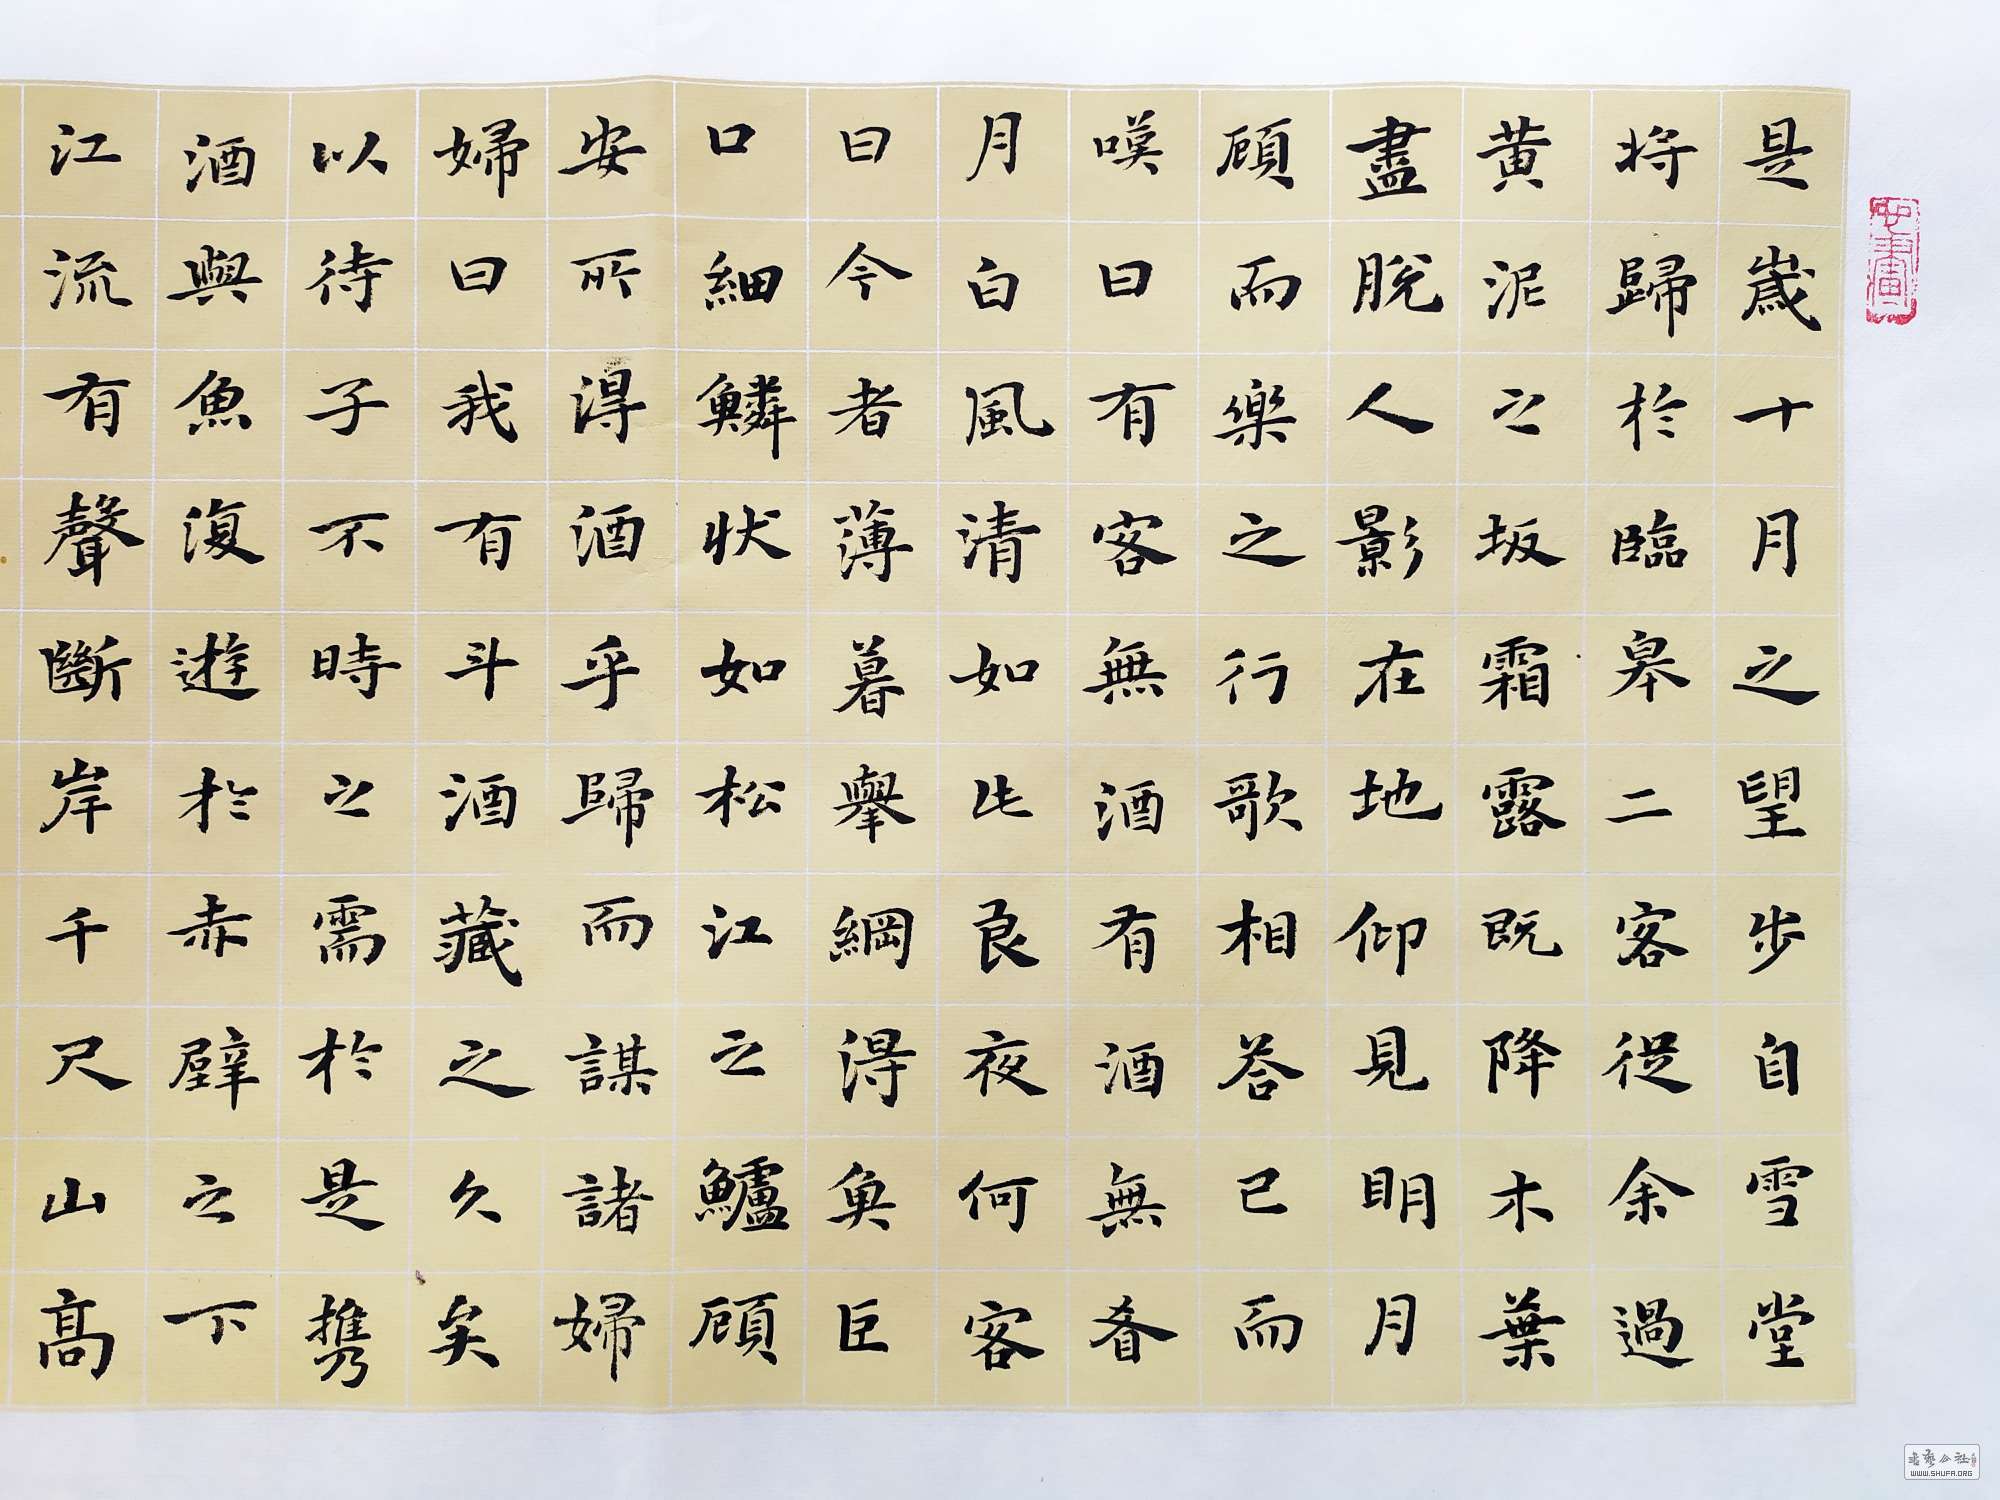 是歲十月之望步自雪堂
將歸於臨皋二客從余過
黃泥之坂霜露既降木葉
盡脫人影在地仰見明月
顧而樂之行歌相答已而
嘆曰有客無酒有酒無肴
月白風清如此良夜何客
曰今者薄暮舉網得魚巨
口細鱗狀如松江之鱸顧
安所得酒乎歸而謀諸婦
婦曰我有斗酒藏之久矣
以待子不時之需於是攜
酒與魚復遊於赤壁之下
江流有聲斷岸千尺山高
书艺公社
WWW.SHUFA.ORG